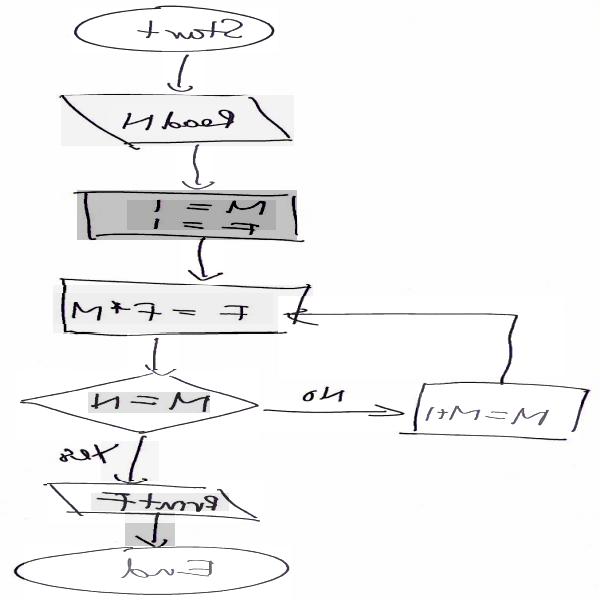 Start
Read N
M = 1
F = 1
F = F*M
M = N
No
M=M+1
Yes
Print F
End